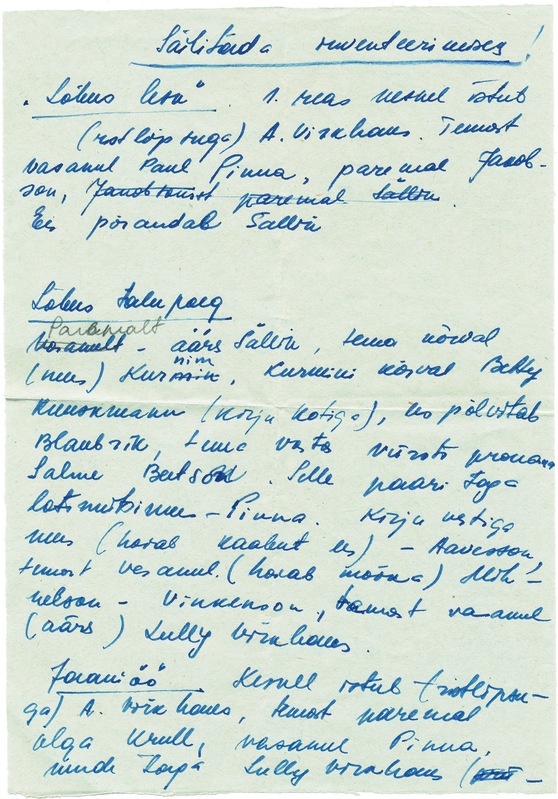 Säilitada inventeerimiseg!
"Lõbus lesk". 1. reas keskel istub
(ristlipsuga) A. Virkhaus. Temast
vasakul Paul Pinna, paremal Jakob-
son, Jakobsonist paremal Sällin.
Ees põrandal Sällin
Lõbus talupoeg
Paremalt
vasakult - äärs Sällin, tema kõrval
(mees) Kurmnim, Kurmini kõrval Betty
Kuuskmann (kirju kotiga), ees põlvitab
Blaubrik, tema vastu
Salme Beetson. Selle paari taga
- Pinna. Kirju vestiga
mees (hoiab kaabut ees) - Aavesson,
temast vasakul (hoiab mõõka) Mih-
kelson - Vinkenson, temast vasakul
(äärs) Sully Virkhaus.
Jaaniöö Keskel istub (ristlipsu-
ga) A. Virkhaus, temast paremal
Olga Krull, vasakul Pinna,
nende taga Sully Virkhaus (